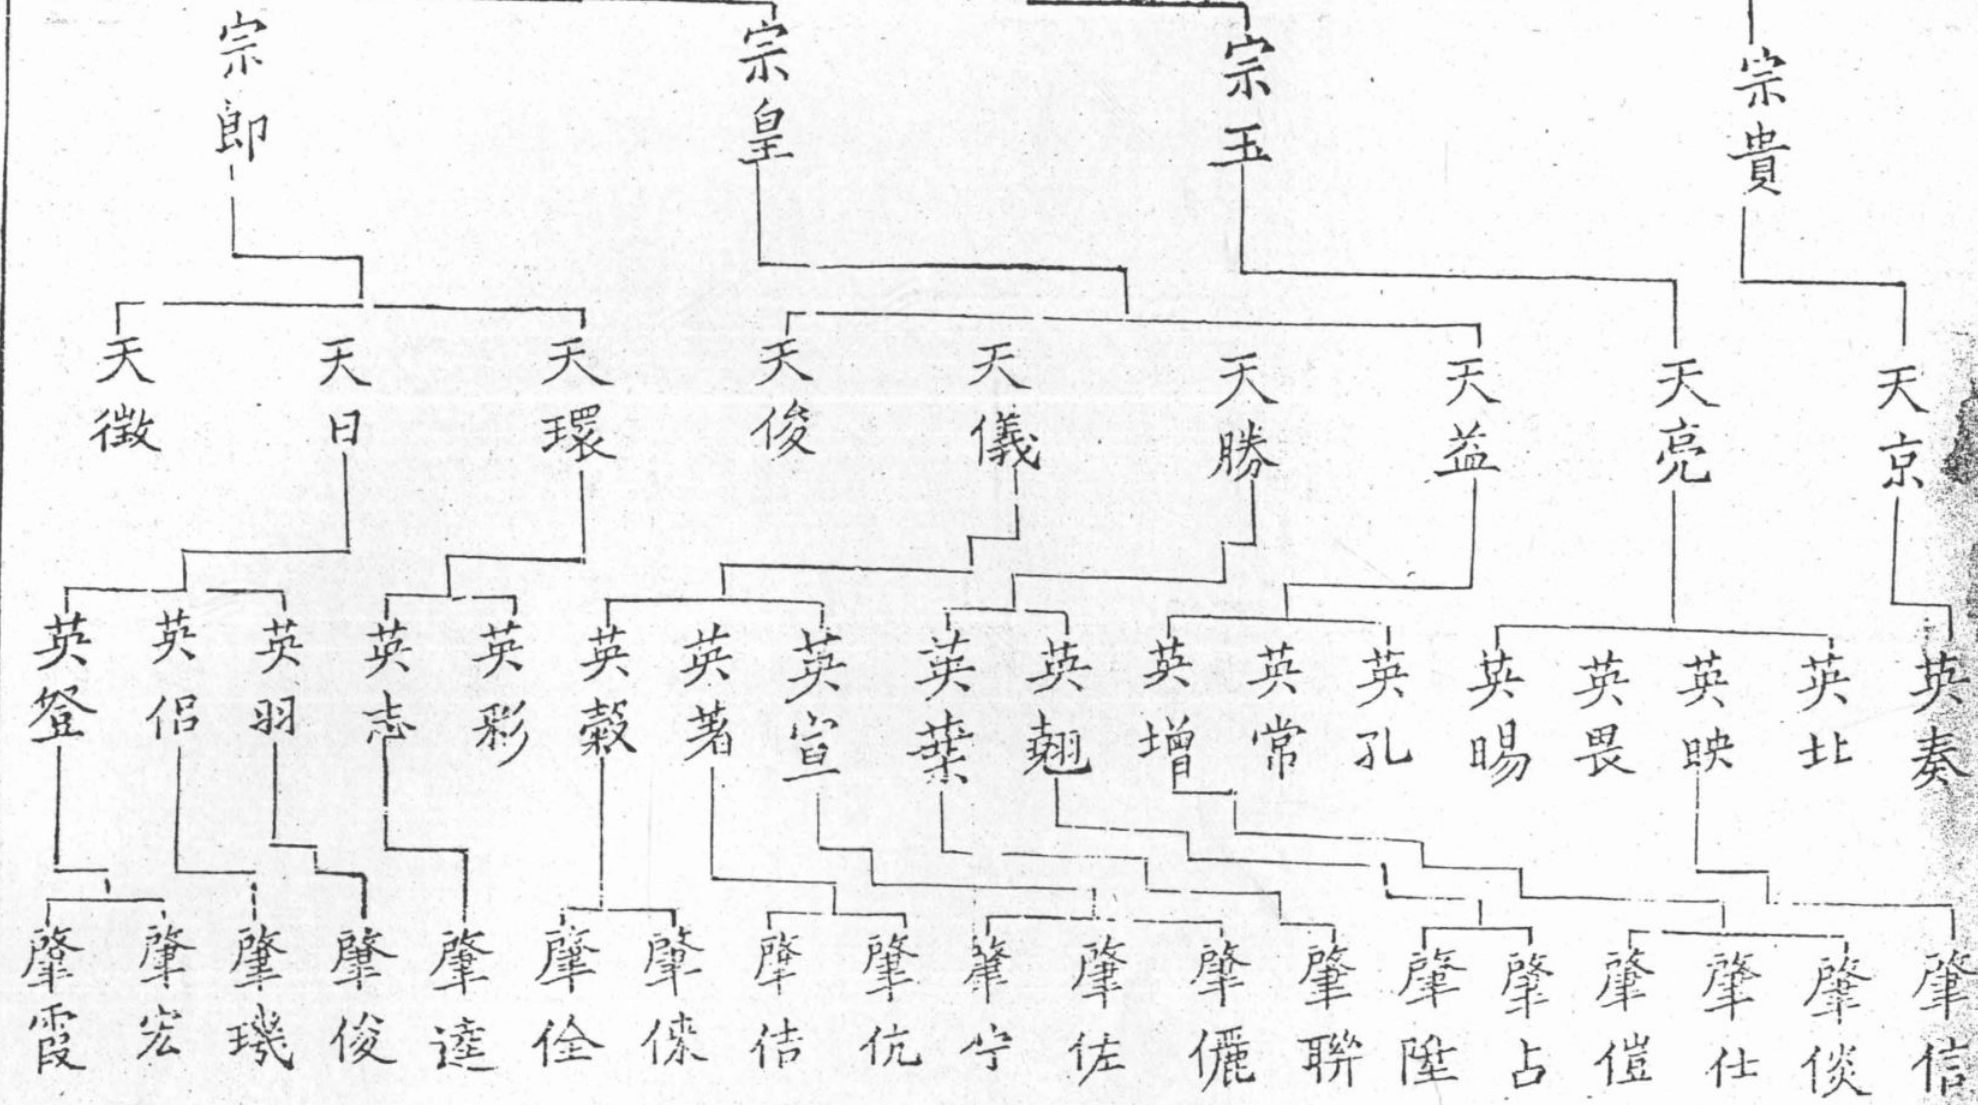 宗貴 宗玉 宗皇 宗郎
天京 天亮 天益 天勝 天儀 天俊 天環 天日 天徵
英奏 英北 英映 英畏 英暘 英孔 英常 英增 英翹 英葉 英宣 英著 英穀 英彩 英志 英羽 英侶 英登
肇信 肇倓 肇仕 肇愷 肇占 肇陞 肇聯 肇儷 肇佐 肇宁 肇伉 肇佶 肇倈 肇佺 肇達 肇俊 肇璣 肇宏 肇霞